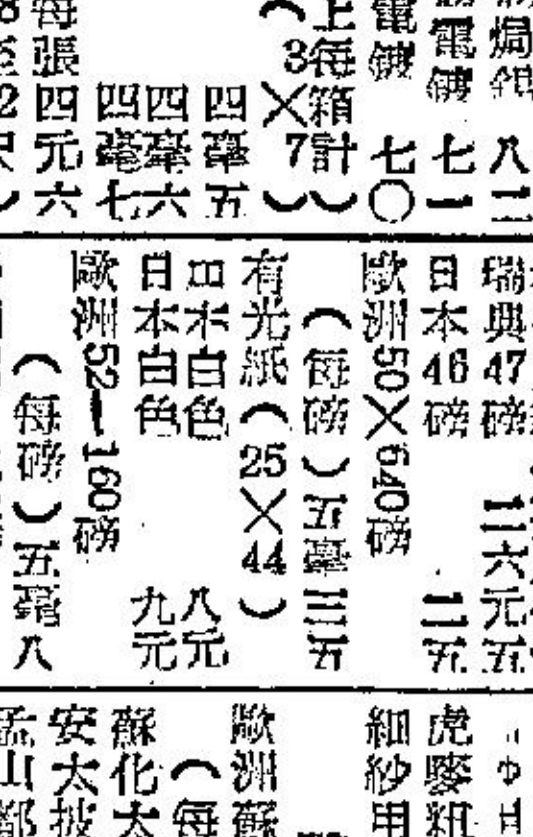 八二
電鍍 七一
電鍍 七〇
上每箱計）
（3×7）
四毫五
四毫六
四毫七
每張四元六
瑞典47磅 二六元五
日本46磅 二五
歐洲50×640磅
（每磅）五毫三五
有光紙（25×44）
日本白色 八元
日本白色 九元
歐洲52—160磅
（每磅）五毫八
虎嘜粗
細紗用
歐洲蘇
（每
蘇化太
安太披
孟山都